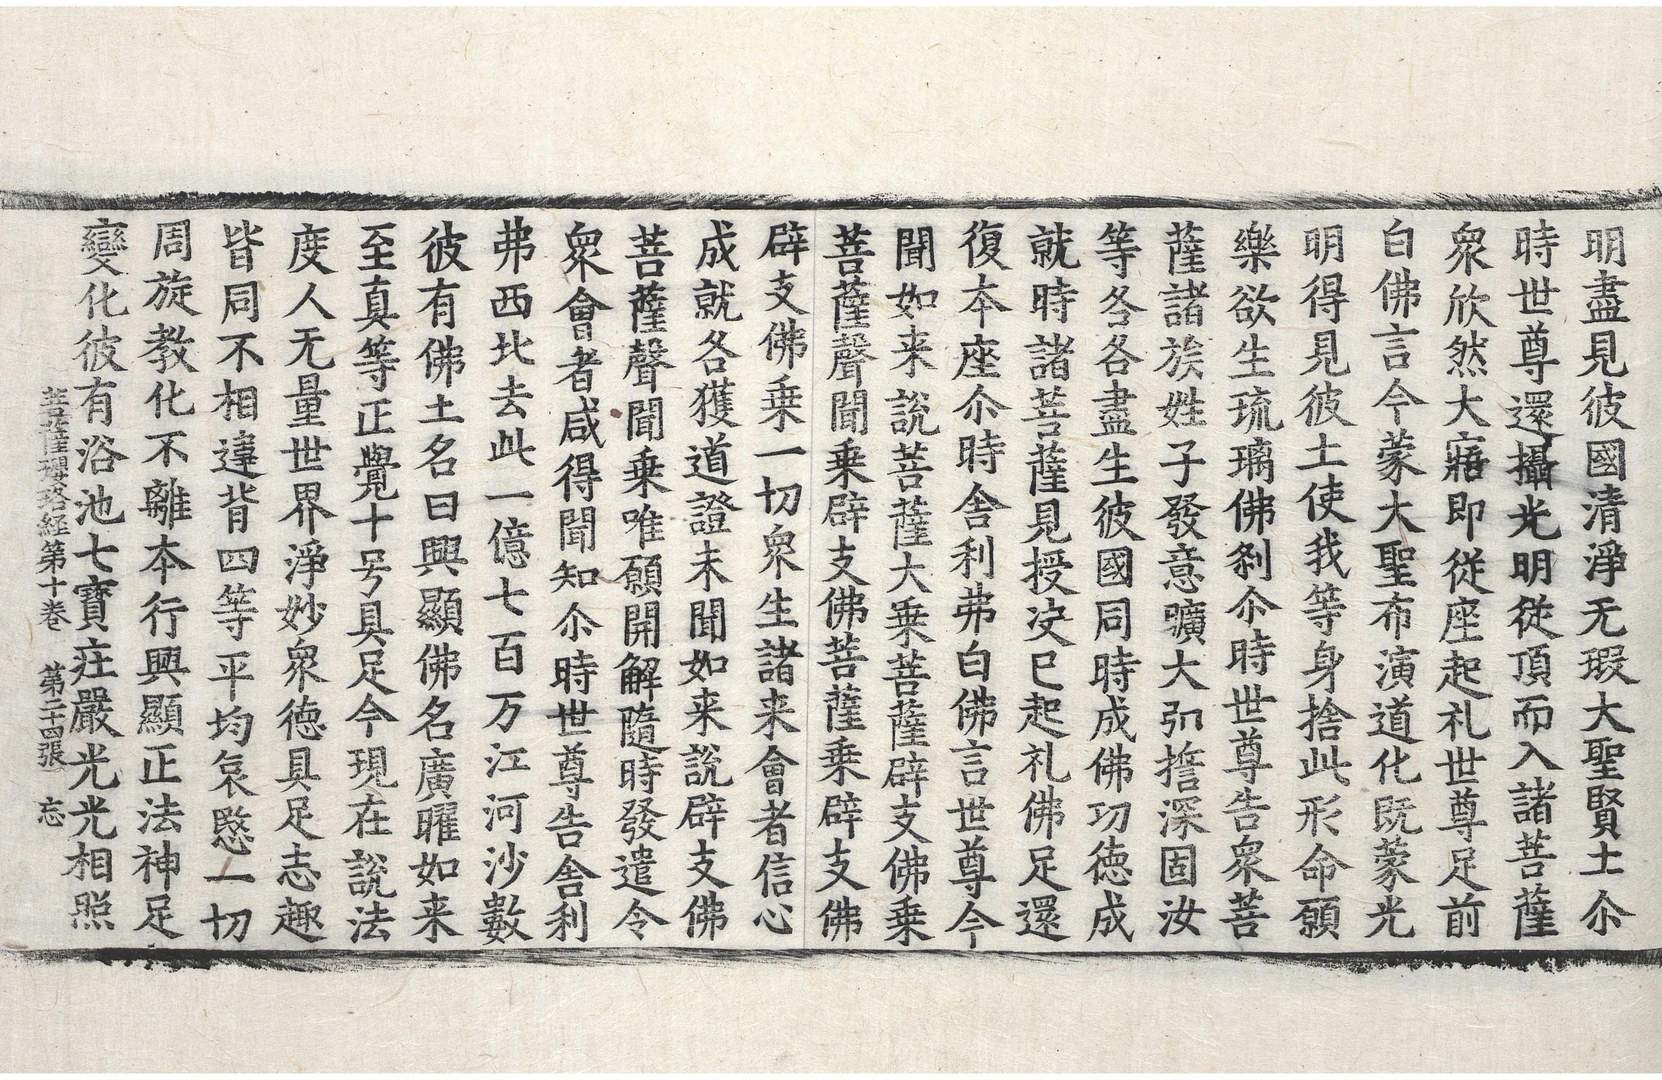 明盡見彼國清淨无瑕大聖賢士尒
時世尊還攝光明從頂而入諸菩薩
衆欣然大寤即從座起礼世尊足前
白佛言今蒙大聖布演道化既蒙光
明得見彼土使我等身捨此形命願
樂欲生琉璃佛刹尒時世尊告衆菩
薩諸族姓子發意曠大弘誓深固汝
等各各盡生彼國同時成佛功德成
就時諸菩薩見授决已起礼佛足還
復本座尒時舍利弗白佛言世尊今
聞如来說菩薩大乗菩薩辟支佛乗
菩薩聲聞乗辟支佛菩薩乗辟支佛
辟支佛乗一切衆生諸来會者信心
成就各獲道證未聞如来說辟支佛
菩薩聲聞乗唯願開解隨時發遣令
衆會者咸得聞知尒時世尊告舍利
弗西北去此一億七百万江河沙數
彼有佛土名曰興顯佛名廣曜如来
至真等正覺十号具足今現在說法
度人无量世界淨妙衆德具足志趣
皆同不相違背四等平均哀愍一切
周旋教化不離本行興顯正法神足
變化彼有浴池七寶庄嚴光光相照
菩薩瓔珞經第十卷 第二十四張 忘